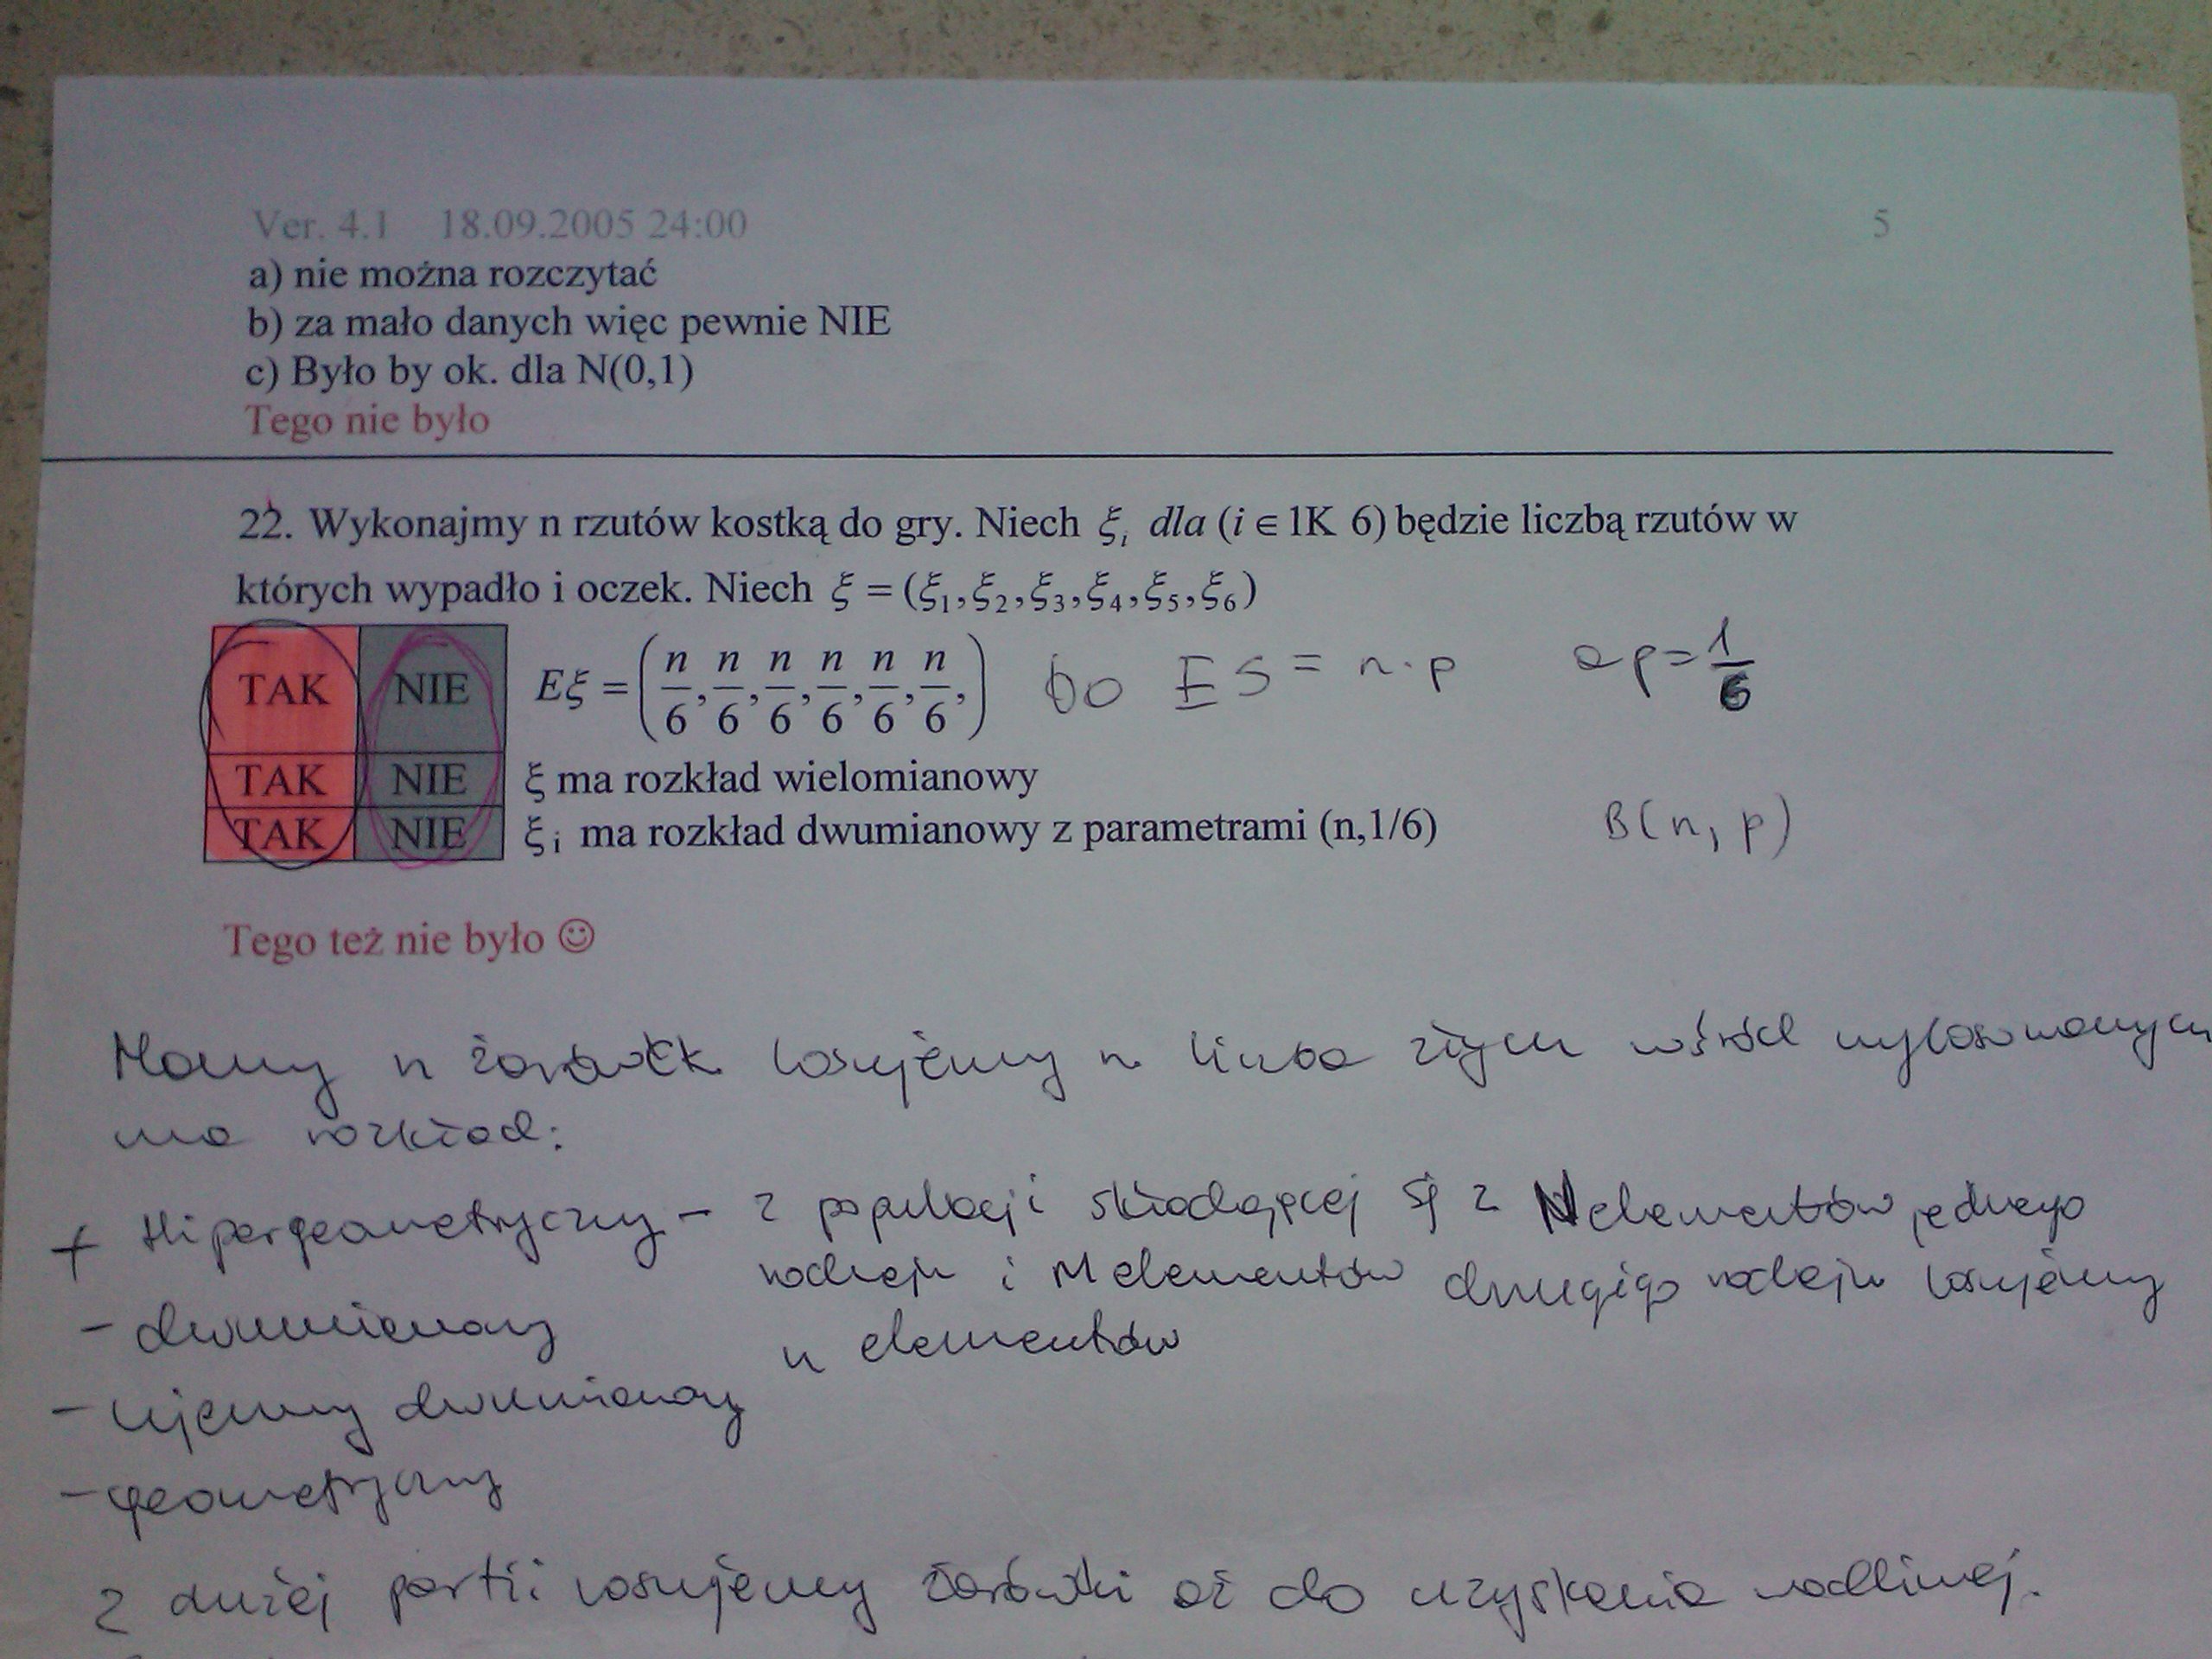 Ver. 4.1 18.09.2005 24:00 5
a) nie można rozczytać
b) za mało danych więc pewnie NIE
c) Było by ok. dla N(0,1)
Tego nie było
22. Wykonajmy n rzutów kostką do gry. Niech ξi dla (i ∈ 1K 6) będzie liczbą rzutów w
których wypadło i oczek. Niech ξ = (ξ1, ξ2, ξ3, ξ4, ξ5, ξ6)
TAK NIE Eξ = (n/6, n/6, n/6, n/6, n/6, n/6,) bo Eξ = n·p a p = 1/6
TAK NIE ξ ma rozkład wielomianowy
TAK NIE ξi ma rozkład dwumianowy z parametrami (n,1/6) B(n, p)
Tego też nie było ☺
Mamy n żarówek losujemy n liczba złych wśród wylosowanych
ma rozkład:
+ Hipergeometryczny – z populacji składającej się z N elementów jednego
rodzaju i M elementów drugiego rodzaju losujemy
n elementów
– dwumianowy
– ujemny dwumianowy
– geometryczny
z dużej partii losujemy żarówki aż do uzyskania wadliwej.